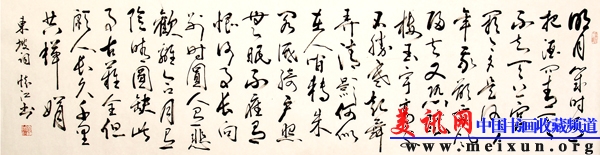 明月幾时有
把酒問青天
不知天上宫
闕今夕是何
年我欲乘风
归去又恐瓊
樓玉宇高處
不勝寒起舞
弄清影何似
在人间轉朱
阁低绮户照
無眠不應有
恨何事長向
别时圆人有悲
歡離合月有
陰晴圆缺此
事古難全但
願人長久千里
共嬋娟
東坡詞
美讯网
中国书画收藏频道
www.meixun.org